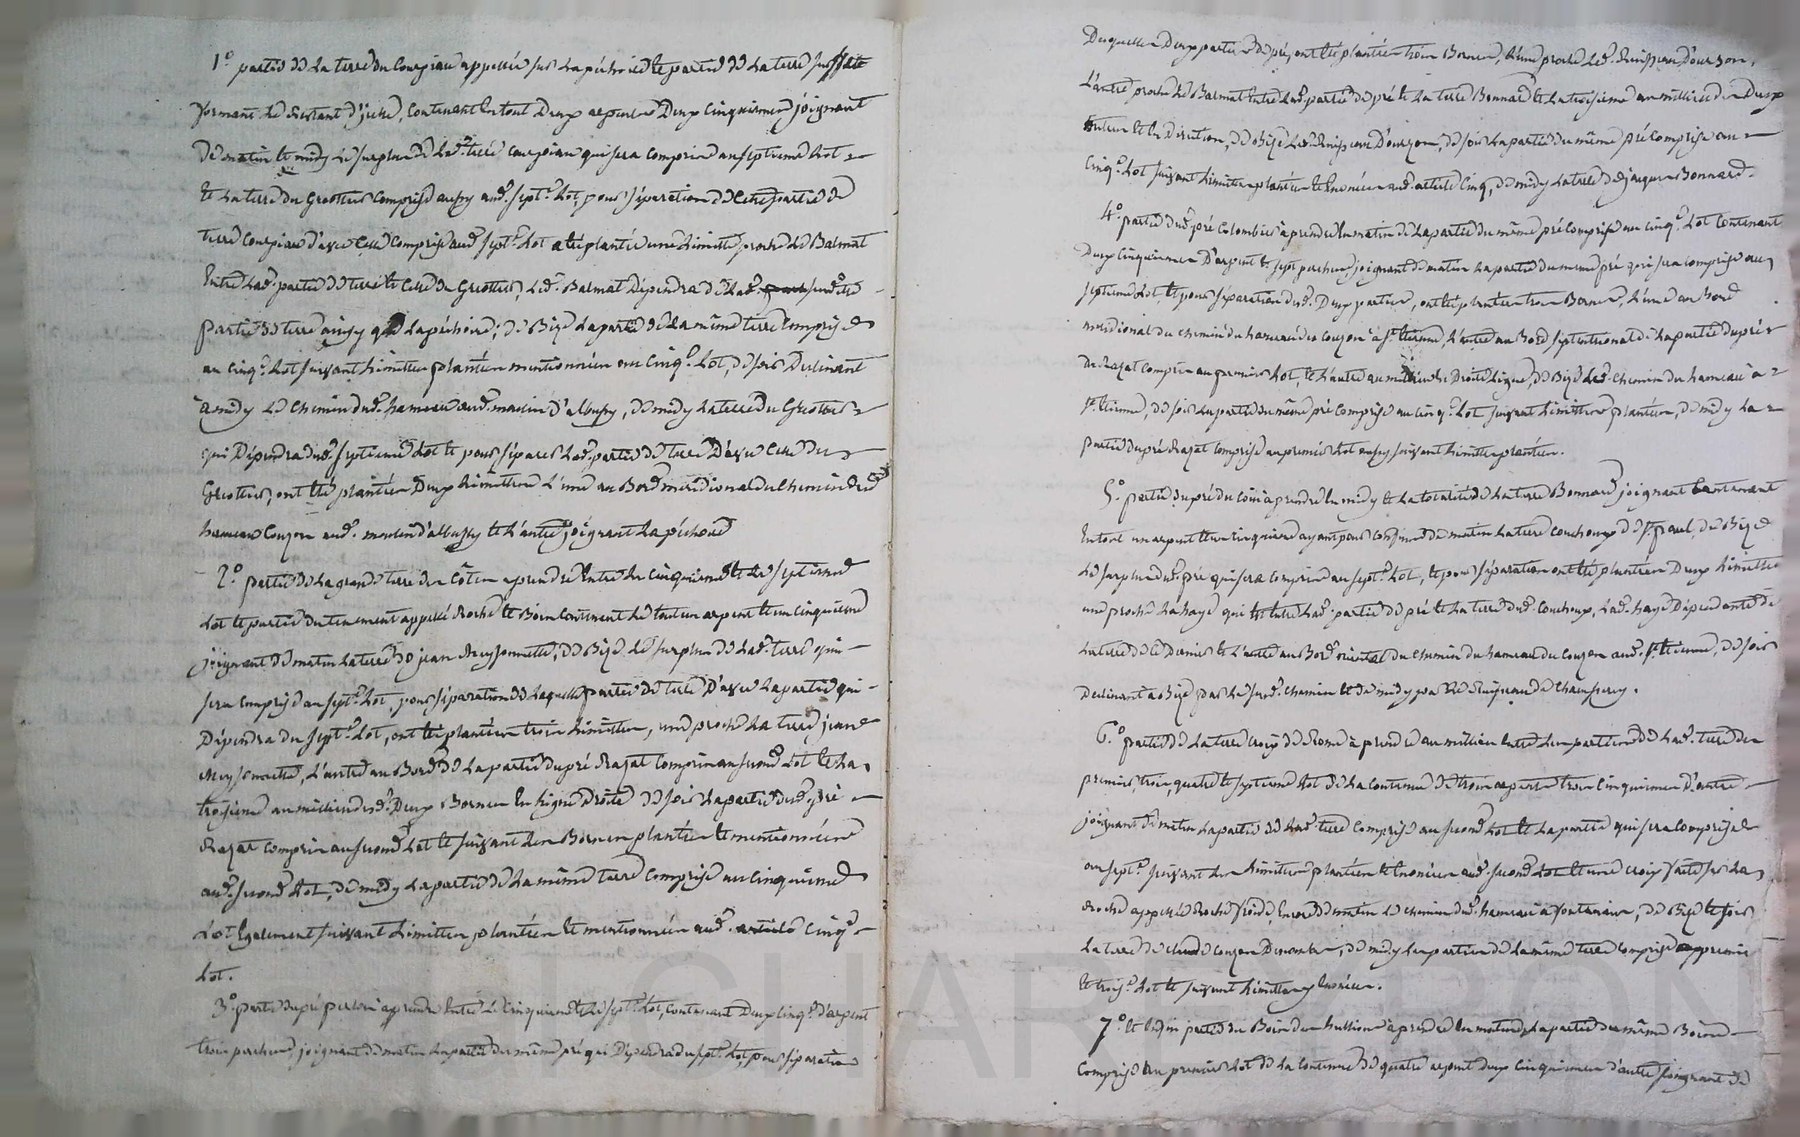 1° partie de la terre du Couzian appellée sur la pechoire et partie de la terre
formant le restant d'icelle, contenant en tout deux arpents deux cinquiemes joignant
de matin et midy le surplus de lad. terre qui sera comprise au septieme lot
et la terre du Greottier comprise aussy aud. sept.e lot, pour séparation de cette partie de
terre d'avec celle comprise aud. sept.e lot a été plantée une limitte proche le Balmat
entre lad. partie de terre et celle du Greottier, led. Balmat dépendra de lad. susditte
partie de terre ainsy que la pechoire; de Bize la partie de la même terre comprise
au cinq.e lot suivant limittes plantées mentionnées au cinq.e lot, de soir declinant
à midy le chemin dud. hameau aud. moulin d'albussy, de midy la terre du Greottier
qui dépendra dud. septieme lot et pour séparer lad. partie de terre d'avec celle du
Greottier, ont été plantées deux limittes l'une au Bord meridional du chemin dud.
hameau Couzon aud. moulin d'albussy et l'autre joignant la pechoire
2° partie de la grande terre des Côtes a prendre entre le cinquieme et le septieme
lot et partie du tenement appellé Roche et Bois contenant le tout un arpent et un cinquieme
joignant de matin la terre de jean Meyssonnette, de Bize le surplus de lad. terre qui
sera compris au sept.e lot, pour séparation de laquelle partie de terre d'avec la partie qui
dépendra du sept.e lot, ont été plantées trois limittes, une proche la terre jean
, l'autre au Bord de la partie du pré Razat compris au second lot et la
troisieme au millieu desd. deux Bornes en ligne droite de soir la partie dud. pré
Razat compris au second lot et suivant les Bornes plantées et mentionnées
aud. second lot, de midy la partie de la même terre comprise au cinquieme
lot egalement suivant limittes plantées et mentionnées aud. article cinq.e
lot.
3° partie du pré a prendre entre le cinquieme et le sept.e lot, contenant deux cinq.es d'arpent
trois perches joignant de matin la partie du même pré qui dépendra du sept.e lot, pour séparation
Desquelles deux parties de pré, ont été plantées trois Bornes, l'une proche led. Ruisseau d'ourzon,
l'autre proche le Balmat entre lad. partie de pré et la terre Bonnard et la troisieme au millieu des deux
autres et en direction, de Bize led. Ruisseau d'ourzon, de soir la partie du même pré comprise au
cinq.e lot suivant limittes plantées et enoncées aud. article cinq, de midy la terre de jacques Bonnard.
4° partie dud. pré Colombier à prendre en matin de la partie du même pré comprise au cinq.e lot contenant
deux cinquiemes d'arpent et sept perches, joignant de matin la partie du meme pré qui sera comprise au
septieme lot, et pour séparation desd. deux parties, ont été plantées trois Bornes, l'une au Bord
meridional du chemin du hameau de Couzon à S.t Etienne, l'autre au Bord septentrional de la partie du pré
de Razat compris au premier lot, et l'autre au millieu en droite ligne, de Bize led. chemin du hameau à
S.t Etienne, de soir la partie du même pré comprise au cinq.e lot suivant limittes plantées, de midy la
partie du pré Razat comprise au premier lot aussy suivant limittes plantées.
5° partie du pré du Coin à prendre en midy et la totalité de la terre Bonnard joignant contenant
en tout un arpent et un cinquieme ayant pour confins de matin la terre Couchoux de S.t paul, de Bize
le surplus dud. pré qui sera compris au sept.e lot, et pour séparation ont été plantées deux limittes
une proche la haye qui est entre lad. partie de pré et la terre dud. Couchoux, lad. haye dépendante de
la terre de ce dernier et l'autre au Bord oriental du chemin du hameau du Couzon aud. S.t Etienne, de soir
declinant a Bize par le susd. chemin et de midy par
6° partie de la terre Croix de Rome à prendre au millieu entre les parties de lad. terre des
premier, trois, quatre et septieme lot de la contenue de trois arpents trois cinquiemes d'autre
joignant de matin la partie de lad. terre comprise au second lot et la partie qui sera comprise
au sept.e suivant les limittes plantées et enoncées aud. second lot et une croix faite sur la
Roche appellée Roche froide, encore de matin le chemin dud. hameau à fontanier, de Bize et soir
la terre de claude Couzon, de midy les parties de la même terre comprise au premier
et trois.e lot et suivant limittes y enoncées.
7° et enfin partie du Bois des hullion à prendre en matin de la partie du même Bois
comprise au premier lot de la contenue de quatre arpent deux cinquiemes d'autre joignant de